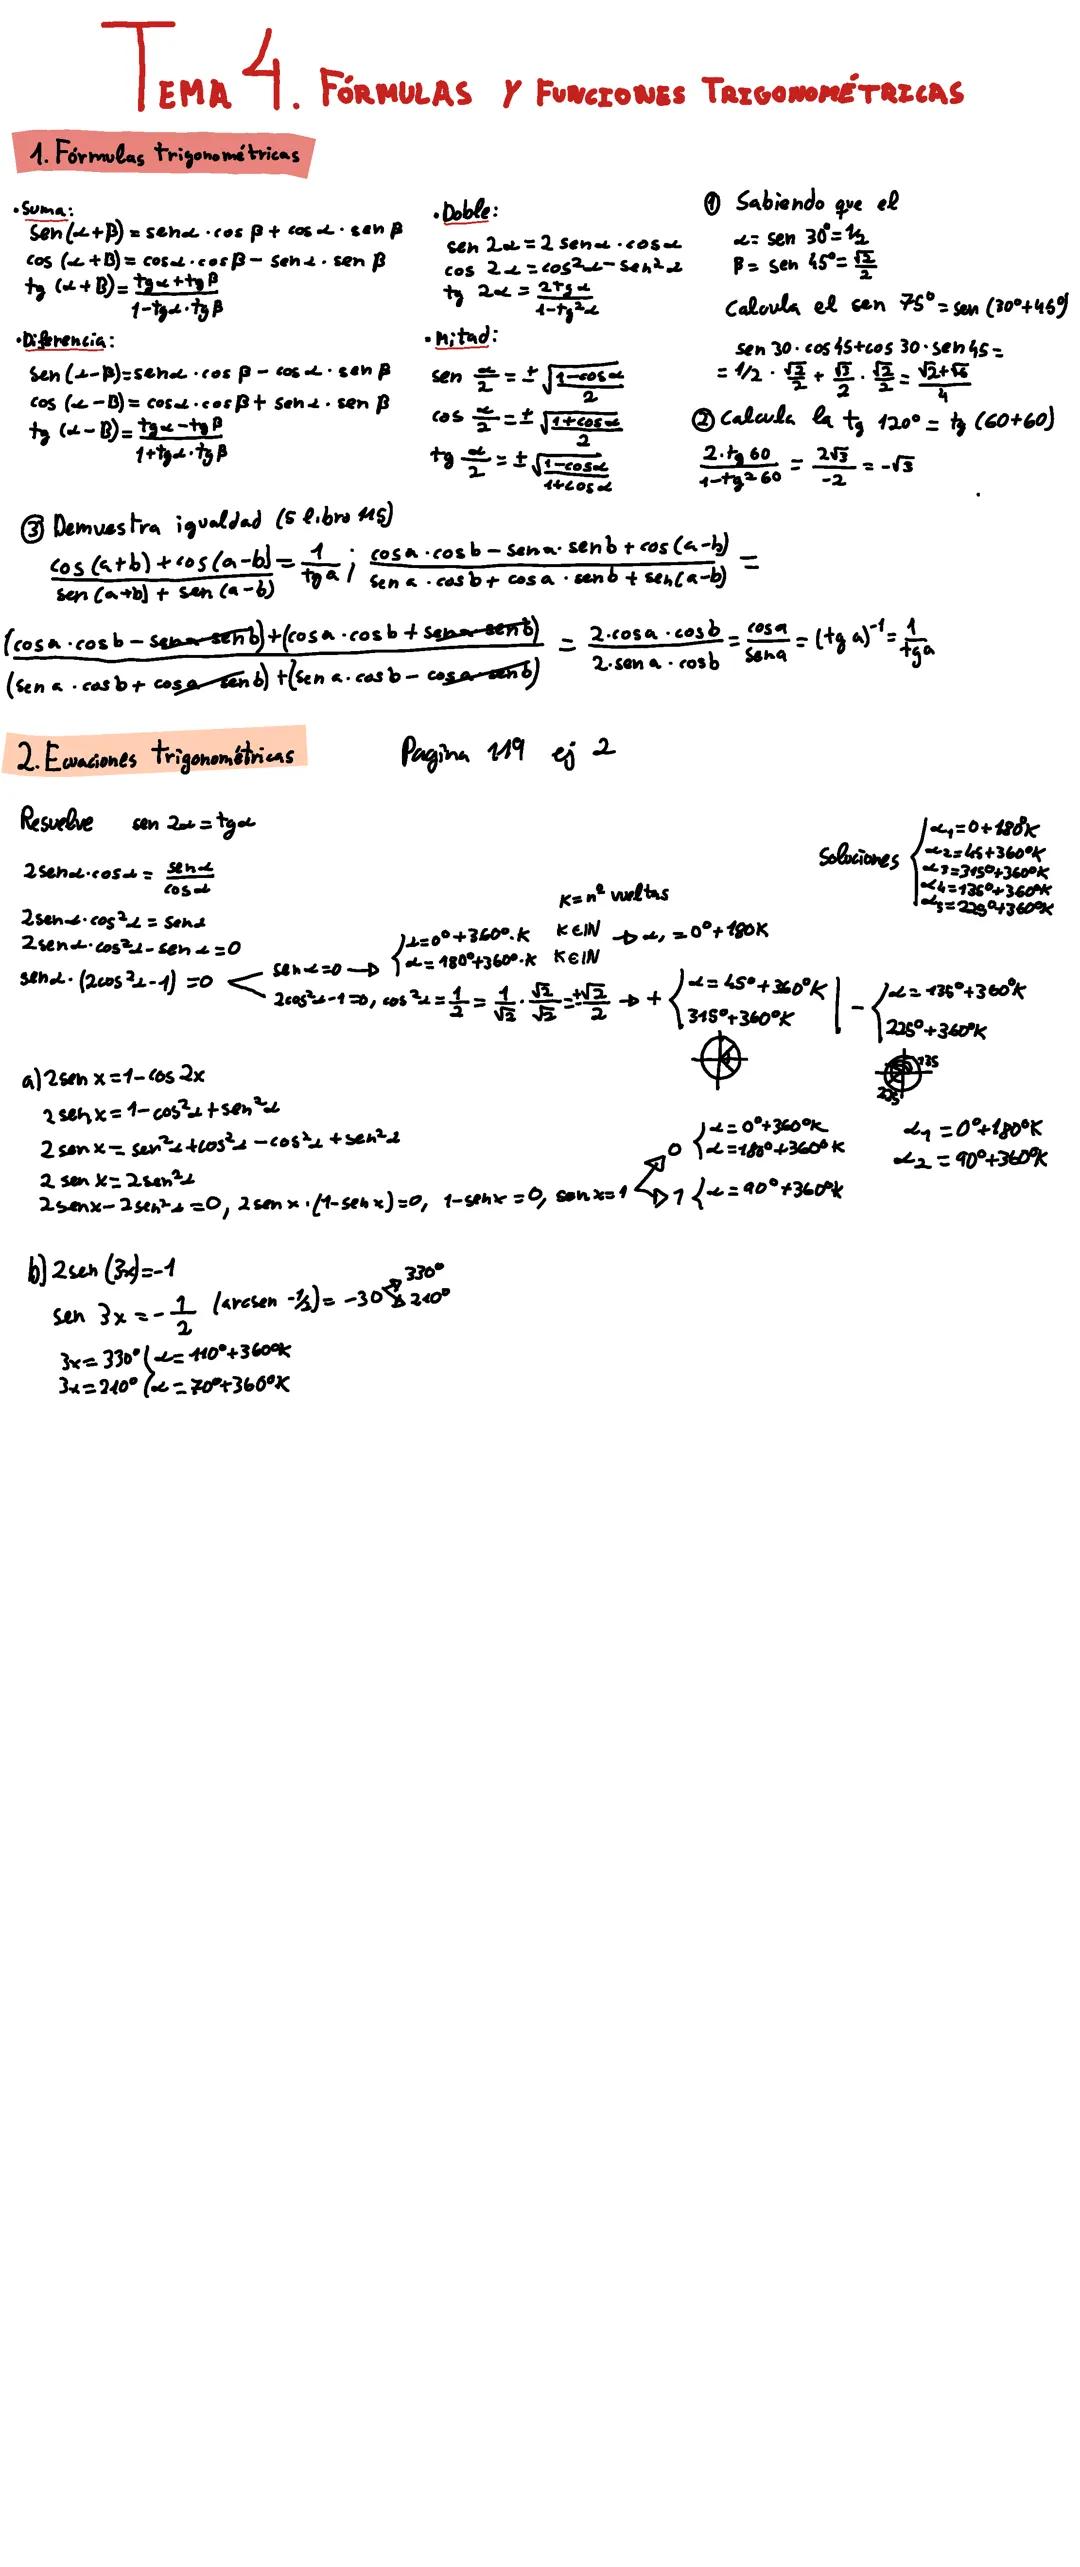 TEMA 4. FÓRMULAS Y FUNCIONES TRIGONOMÉTRICAS
1. Fórmulas trigonométricas
· Suma:
sen (α+β) = senα · cos β + cos α · sen β
cos (α+B) = cosα · cos β − senα · sen β
tg (α+B) = (tgα + tgβ)/(1−tgα·tgβ)
· Diferencia:
sen (α−β) = senα · cos β − cos α · sen β
cos (α−B) = cosα · cos β + senα · sen β
tg (α−B) = (tgα − tgβ)/(1+tgα·tgβ)
· Doble:
sen 2α = 2 senα · cosα
cos 2α = cos²α − sen²α
tg 2α = 2tgα/(1−tg²α)
· Mitad:
sen α/2 = ± √(1−cosα)/2
cos α/2 = ± √(1+cosα)/2
tg α/2 = ± √(1−cosα)/(1+cosα)
① Sabiendo que el
α = sen 30° = 1/2
β = sen 45° = √2/2
Calcula el sen 75° = sen (30°+45°)
sen 30 · cos 45 + cos 30 · sen 45 =
= 1/2 · √2/2 + √3/2 · √2/2 = (√2+√6)/4
② Calcula la tg 120° = tg (60+60)
2·tg 60/(1−tg² 60) = 2√3/−2 = −√3
③ Demuestra igualdad (5 libro 115)
(cos (a+b) + cos (a−b))/(sen (a+b) + sen (a−b)) = 1/tg a ; (cos a · cos b − sen a · sen b + cos (a−b))/(sen a · cos b + cos a · sen b + sen (a−b)) =
((cos a · cos b − sen a sen b) + (cos a · cos b + sen a sen b))/((sen a · cos b + cos a sen b) + (sen a · cos b − cos a sen b)) = 2·cos a · cos b/2·sen a · cos b = cos a/sen a = (tg a)⁻¹ = 1/tg a
2. Ecuaciones trigonométricas Pagina 119 ej 2
Resuelve sen 2α = tgα
2senα·cosα = senα/cosα
2senα·cos²α = senα
2senα·cos²α − senα = 0
senα · (2cos²α−1) = 0
senα = 0 → { α = 0°+360°·K K∈IN
α = 180°+360°·K K∈IN
K = nº vueltas
→ α₁ = 0°+180K
2cos²α−1 = 0, cos²α = 1/2 = 1/√2 · √2/√2 = ±√2/2 → + { α = 45°+360°K
315°+360°K
− { α = 135°+360°K
225°+360°K
135
225
Soluciones { α₁ = 0+180°K
α₂ = 45+360°K
α₃ = 315°+360°K
α₄ = 135°+360°K
α₅ = 225°+360°K
a) 2 sen x = 1 − cos 2x
2 sen x = 1 − cos²α + sen²α
2 sen x = sen²α + cos²α − cos²α + sen²α
2 sen x = 2sen²α
2senx − 2sen²α = 0, 2 sen x · (1−sen x) = 0, 1−senx = 0, sen x = 1
0 { α = 0°+360°K
α = 180°+360°K
1 { α = 90°+360°K
α₁ = 0°+180°K
α₂ = 90°+360°K
b) 2sen (3x) = −1
sen 3x = −1/2 (arcsen −1/2) = −30 330°
210°
3x = 330° { α = 110°+360°K
3x = 210° { α = 70°+360°K